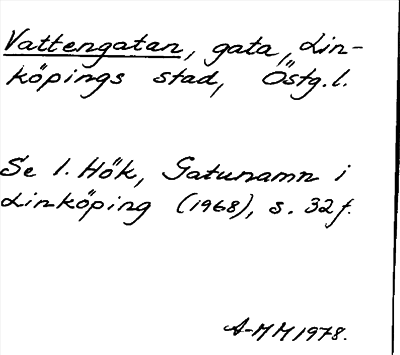 Vattengatan, gata, Lin-
köpings stad, Östg.l.
Se I. Hök, Gatunamn i
Linköping (1968), s. 32 f.
A-MM 1978.